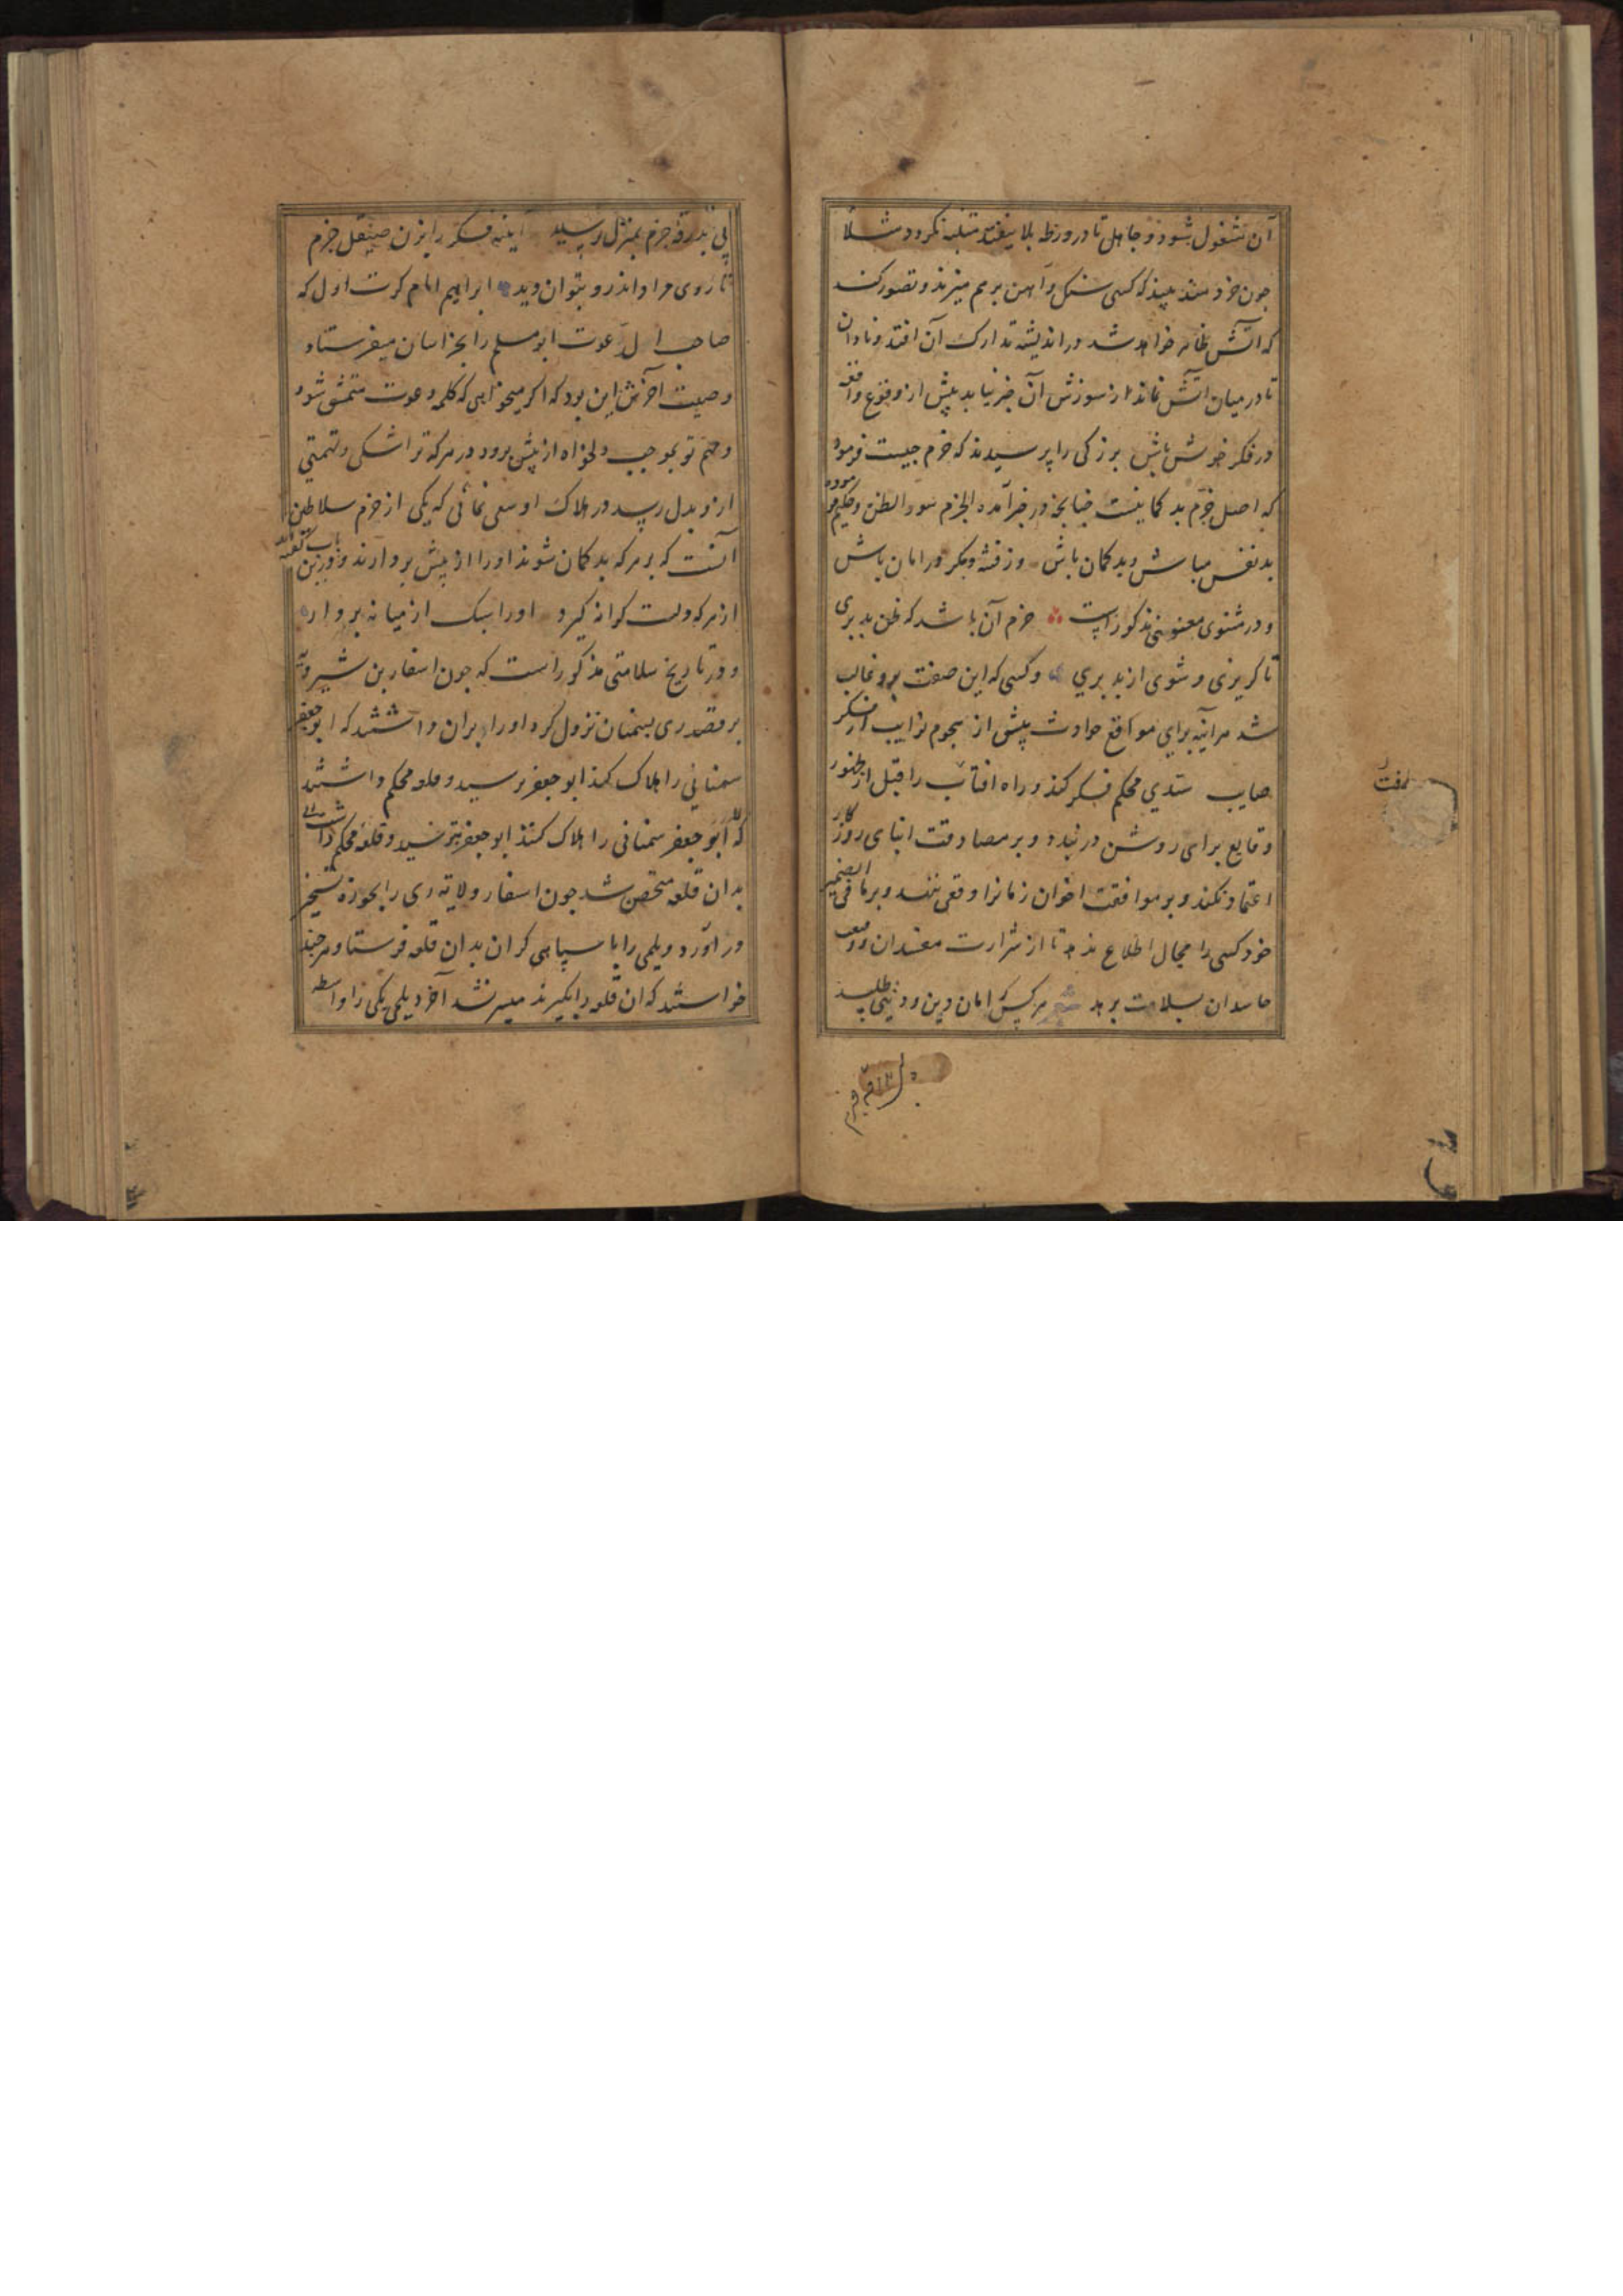 آن مشغول شود و جاهل تا در ورطه بلا نیفتد متنبه نکردد مثلا
چون خردمند بیند که کسی سنک و آهن برهم میزند و تصور کند
که آتش ظاهر خواهد شد در اندیشه تدارک آن افتد و نادان
تا در میان آتش نماند از سوزش آن خبر نیابد پیش از وقوع واقعه
در فکر خویش باش بزرکی را پرسیدند که حزم چیست فرمود
که اصل حزم بد کمانیست چنانچه در خبر آمده الحزم سوء الظن و حکیم فرموده
بد نفس مباش و بد کمان باش وز فتنه و مکر در امان باش
و در مثنوی معنوی مذکور است حزم آن باشد که ظن بد بری
تا کریزی و شوی از بد بری و کسی که این صفت برو غالب
شد هر آینه برای مواقع حوادث پیش از هجوم نوایب از فکر
صایب سدی محکم فکر کند و راه افتاب را قبل از ظهور
وقایع برای روشن در بندد و بر مصادقت ابنای روزکار
اعتماد نکند و بر موافقت اخوان زمانرا وقعی ننهد و بر ما فی الضمیر
خود کسی را مجال اطلاع ندهد تا از شرارت مفسدان و
حاسدان بسلامت برهد شعر هرکس که امان دین و دنیی طلبد
رفت
بی بدرقه حزم بمنزل نرسید آیینه فکر را بزن صیقل حزم
تا روی مراد اندرو بتوان دید ابراهیم امام کرت اول که
صاحب الدعوت ابومسلم را بخراسان میفرستاد
وصیت آخرش این بود که اکر میخواهی که کلمه دعوت متمشی شود
و مهم تو بموجب دلخواه از پیش برود در هرکه ترا شکی و تهمتی
ازو بدل رسد در هلاک او سعی نمائی که یکی از حزم سلاطین
آنست که بر هرکه بد کمان شوند او را از پیش بردارند و درین باب کفته اند
از هرکه دلت کرانه کیرد او را سبک از میانه بردار
و در تاریخ سلامتی مذکور است که چون اسفار بن شیرویه
بر قصد ری بسمنان نزول کرد او را بران داشتند که ابو جعفر
سمنانی را هلاک کند ابو جعفر برسید و قلعه محکم داشتند
که ابو جعفر سمنانی را هلاک کنند ابو جعفر بترسید و قلعه محکم داشت
بدان قلعه متحصن شد چون اسفار ولایه ری را بحوزه تسخیر
در آورد دیلمی را با سپاهی کران بدان قلعه فرستاد و هرچند
خواستند که آن قلعه را بگیرند میسر نشد آخر دیلمی یکی را واسطه